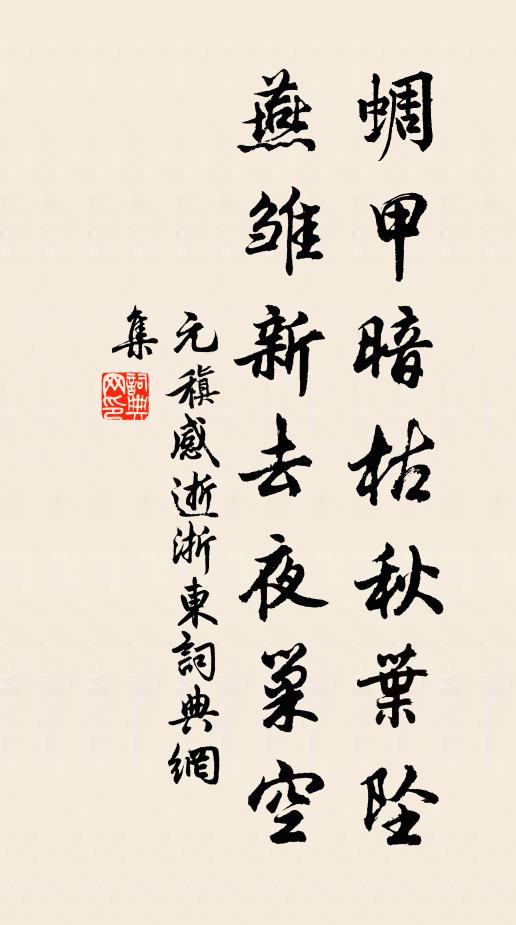 蜩甲暗枯秋葉墜
燕雏新去夜巢空
元稹感逝浙東詞典網
集
詞典
网印